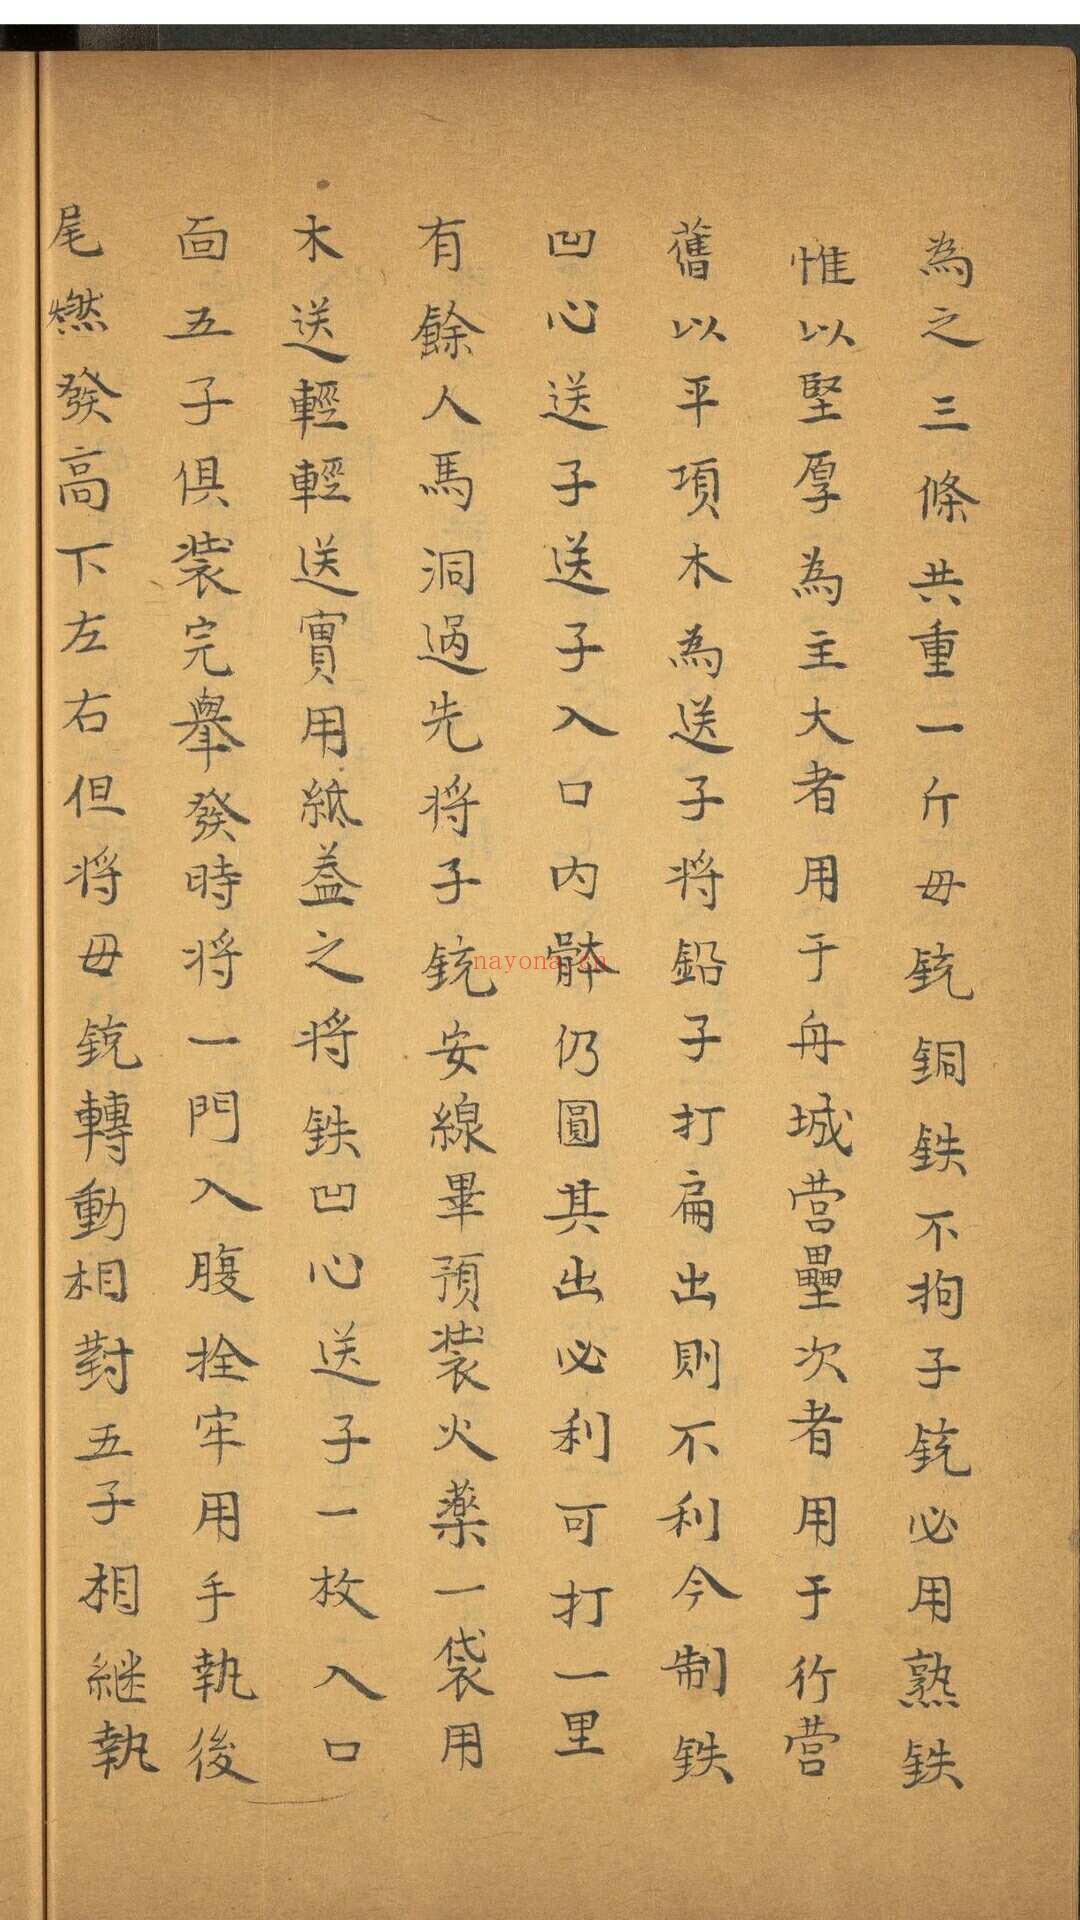 為之三條共重一斤母銃銅鉄不拘子銃必用熟鉄
惟以堅厚為主大者用于舟城营壘次者用于行营
舊以平項木為送子将鉛子打扁出則不利今制鉄
凹心送子送子入口内骵仍圓其出必利可打一里
有餘人馬洞過先将子銃安線畢預装火薬一袋用
木送輕輕送實用紙盖之将鉄凹心送子一枚入口
面五子俱装完舉發時将一門入腹拴牢用手執後
尾燃發高下左右但将母銃轉動相對五子相継執
nayona.cn